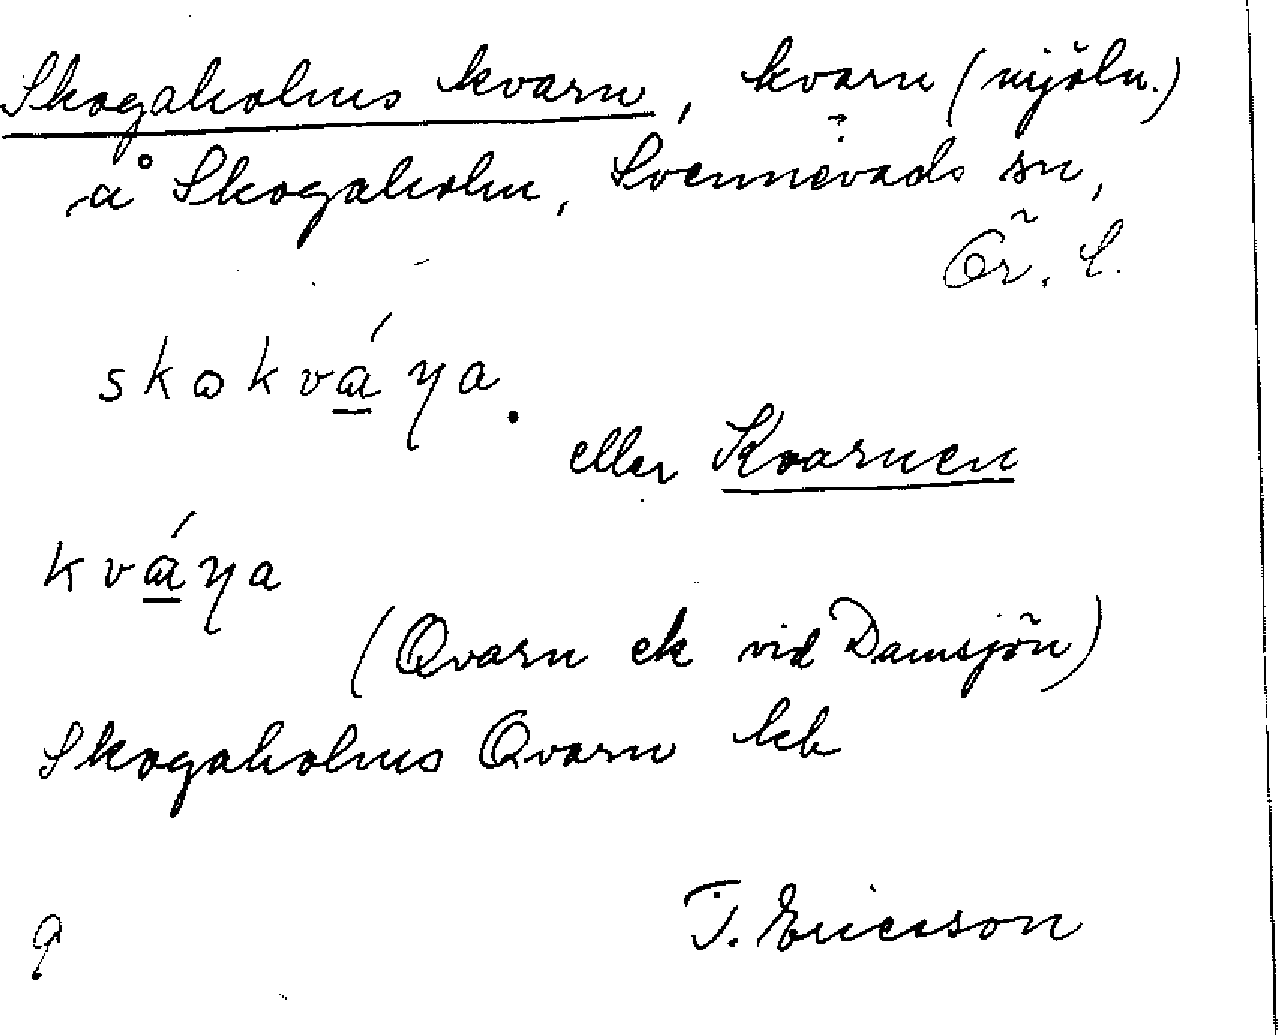 Skogaholms kvarn, kvarn (mjöln.)
å Skogaholm, Svennevads sn,
Ör. l.
skɷkvá̲ɳa.
eller Kvarnen
kvá̲ɳa
(Qvarn ek vid Damsjön)
Skogaholms Qvarn kb
T. Ericsson